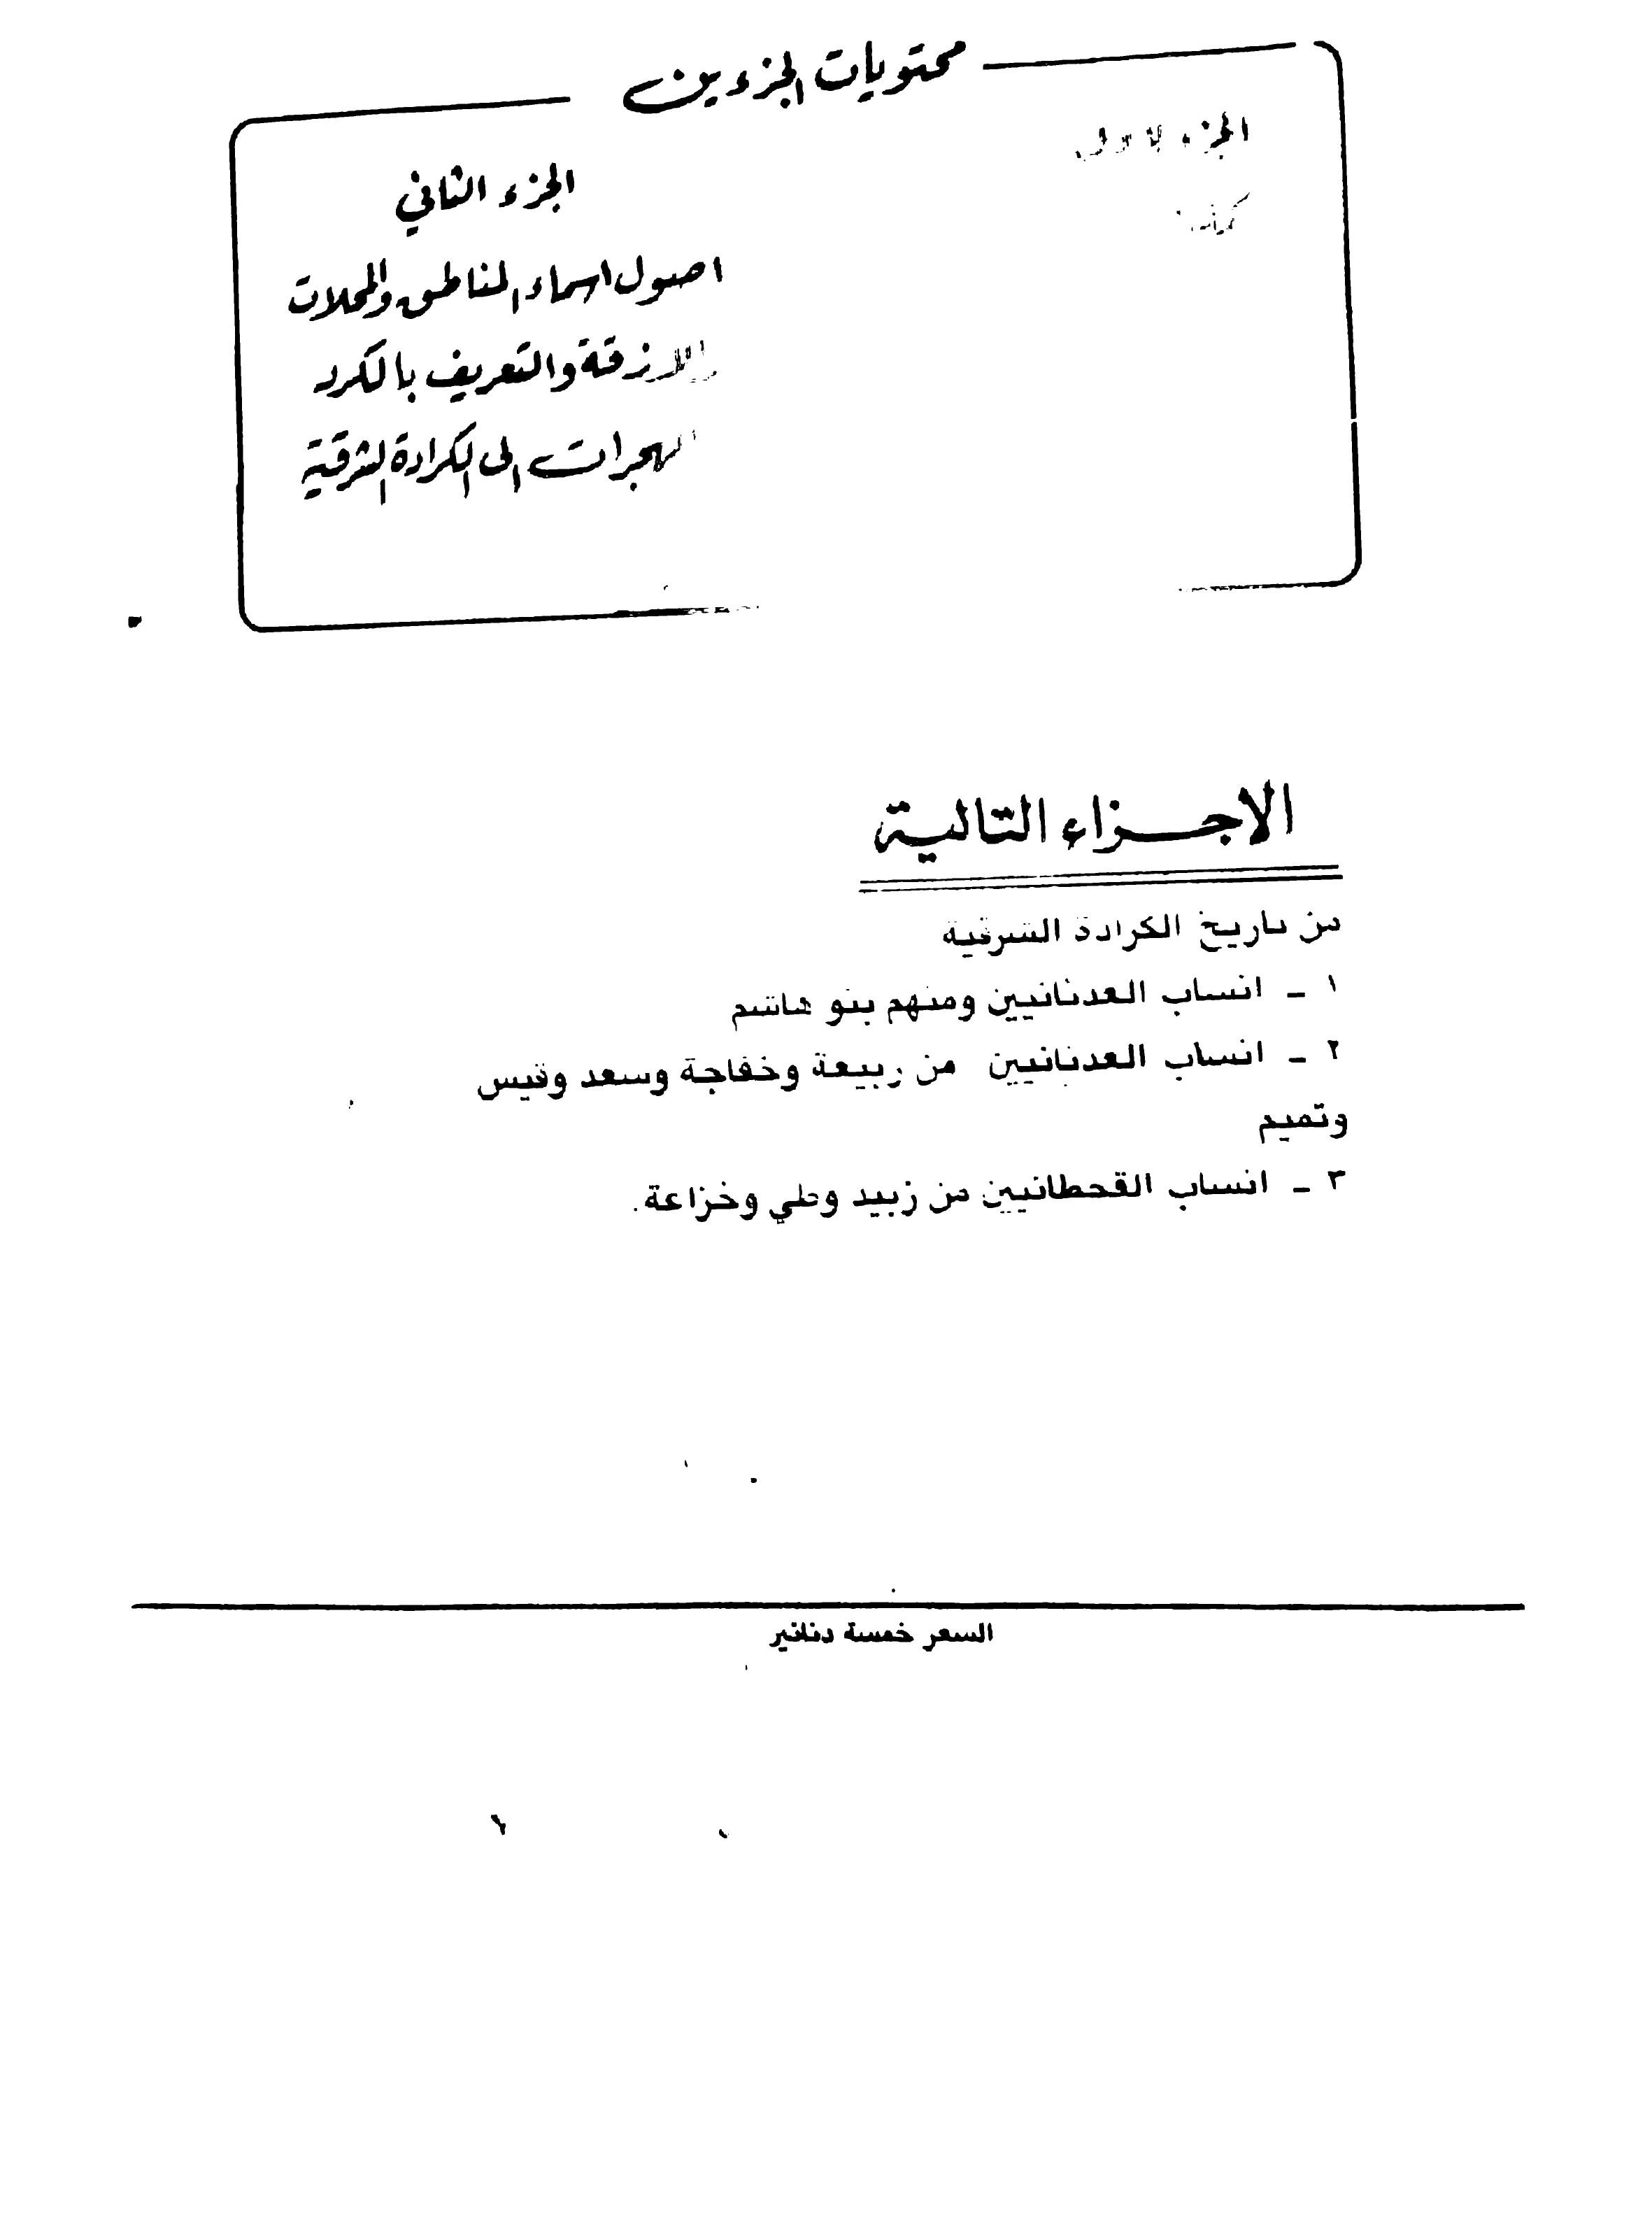 محتويات الجزءين
الجزء الاول
الجزء الثاني
اصول اسماء المناطق والمحلات
والازقة والتعريف بالكرد
الهجرات الى الكرادة الشرقية
الاجزاء التالية
من تاريخ الكرادة الشرقية
١ - انساب العدنانيين ومنهم بنو هاشم
٢ - انساب العدنانيين من ربيعة وخفاجة وسعد وقيس
وتميم
٣ - انساب القحطانيين من زبيد وطي وخزاعة.
السعر خمسة دنانير